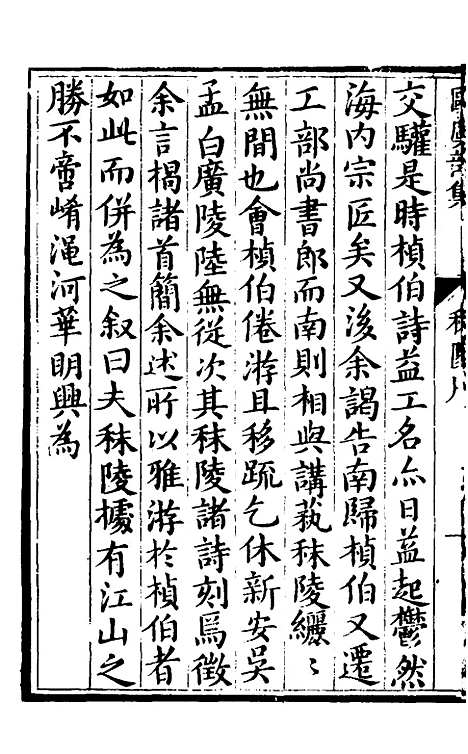 歐虞部集
交驩是時楨伯詩益工名亦日益起鬱然
海内宗匠矣又後余謁告南歸楨伯又遷
工部尚書郎而南則相與講蓺秣陵纚〻
無間也會楨伯倦游且移疏乞休新安吳
孟白廣陵陸無從次其秣陵諸詩刻焉徵
余言楬諸首簡余述所以雅游於楨伯者
如此而併為之叙曰夫秣陵據有江山之
勝不啻崤澠河華明興為